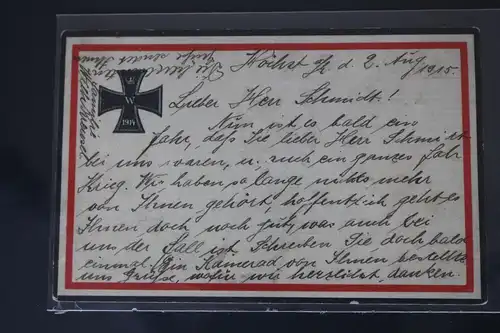 Höchst a/M. d. 2. Aug 1915.
Lieber Herr Schmidt!
W
1914
Nun ist es bald ein
Jahr, daß Sie lieber Herr Schmidt
bei uns waren, u. auch ein ganzes Jahr
Krieg. Wir haben so lange nichts mehr
von Ihnen gehört, hoffentlich geht es
Ihnen doch noch gut, was auch bei
uns der Fall ist. Schreiben Sie doch bald
einmal. Ein Kamerad von Ihnen bestellte
uns Grüße, wofür wir herzlichst danken.
Die herzlichsten
Grüße sendet Ihnen